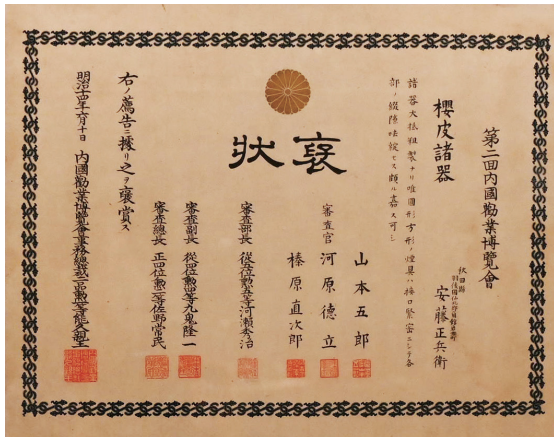 第二回内國勸業博覽會
秋田縣
安藤正兵衛
櫻皮諸器
諸器大抵粗製ナリ唯圓形方形ノ煙具ハ接口緊密ニシテ各
部ノ綴隙
ヒス頗ル嘉ス可シ
褒狀
山本五郎
審査官 河原德立
榛原直次郎
審査部長 從五位勲五等河瀬秀治
審査副長 從四位勲四等九鬼隆一
審査總長 正四位勲二等佐野常民
右ノ薦告ニ據リ之ヲ褒賞ス
明治十四年六月十日 內國勸業博覽會事務總裁二品勲一等能久親王